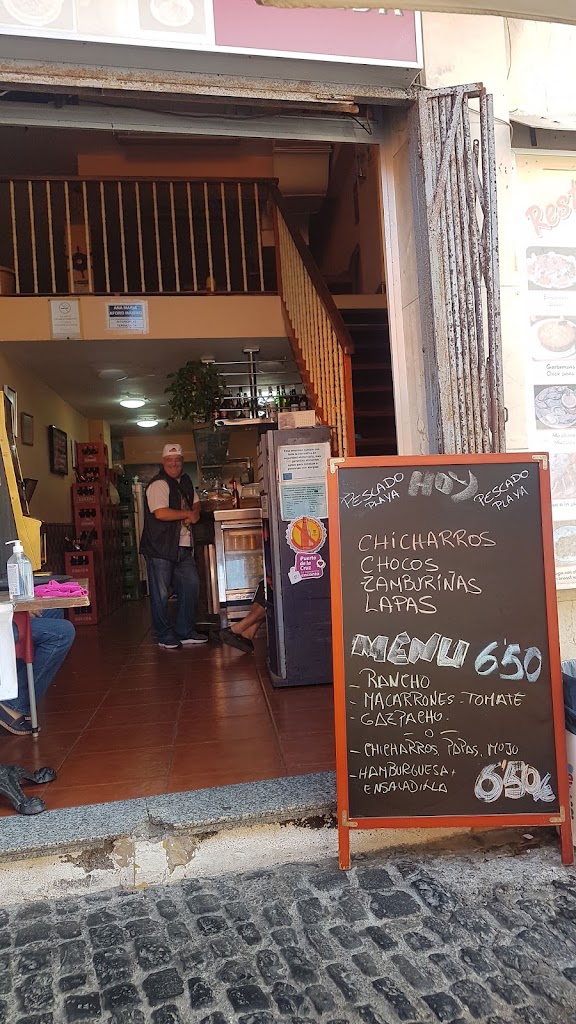 PESCADO
PLAYA
HOY
PESCADO
PLAYA
CHICHARROS
CHOCOS
ZAMBURIÑAS
LAPAS
MENU 6'50
- RANCHO
- MACARRONES-TOMATE
- GAZPACHO.
- O -
- CHICHARROS, PAPAS, MOJO
- HAMBURGUESA +
ENSALADILLA 6'50€
Puerto
de la
Cruz
AFORO MÁXIMO
Rest